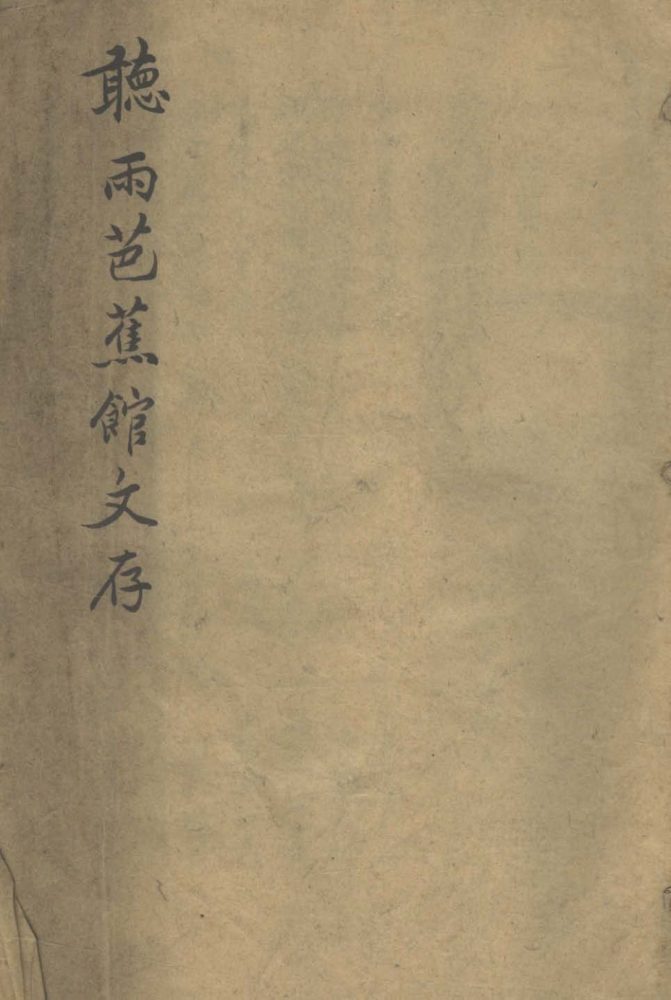 聽雨芭蕉館文存